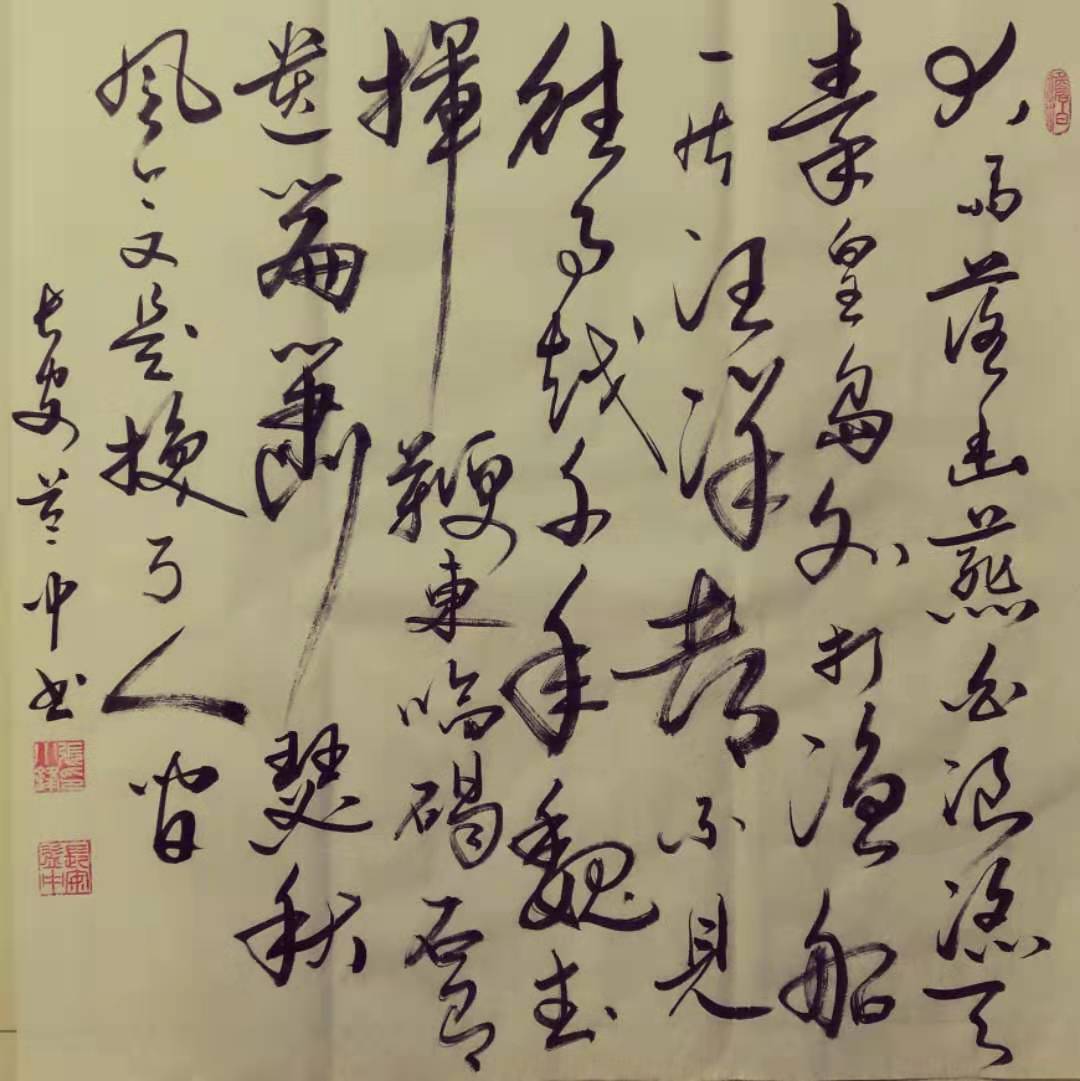 澹泊
大雨落幽燕白浪滔天
秦皇島外打漁船
一片汪洋都不見
往事越千年魏武
揮鞭東臨碣石有
遺篇蕭瑟秋
風今又是換了人間
長安中书